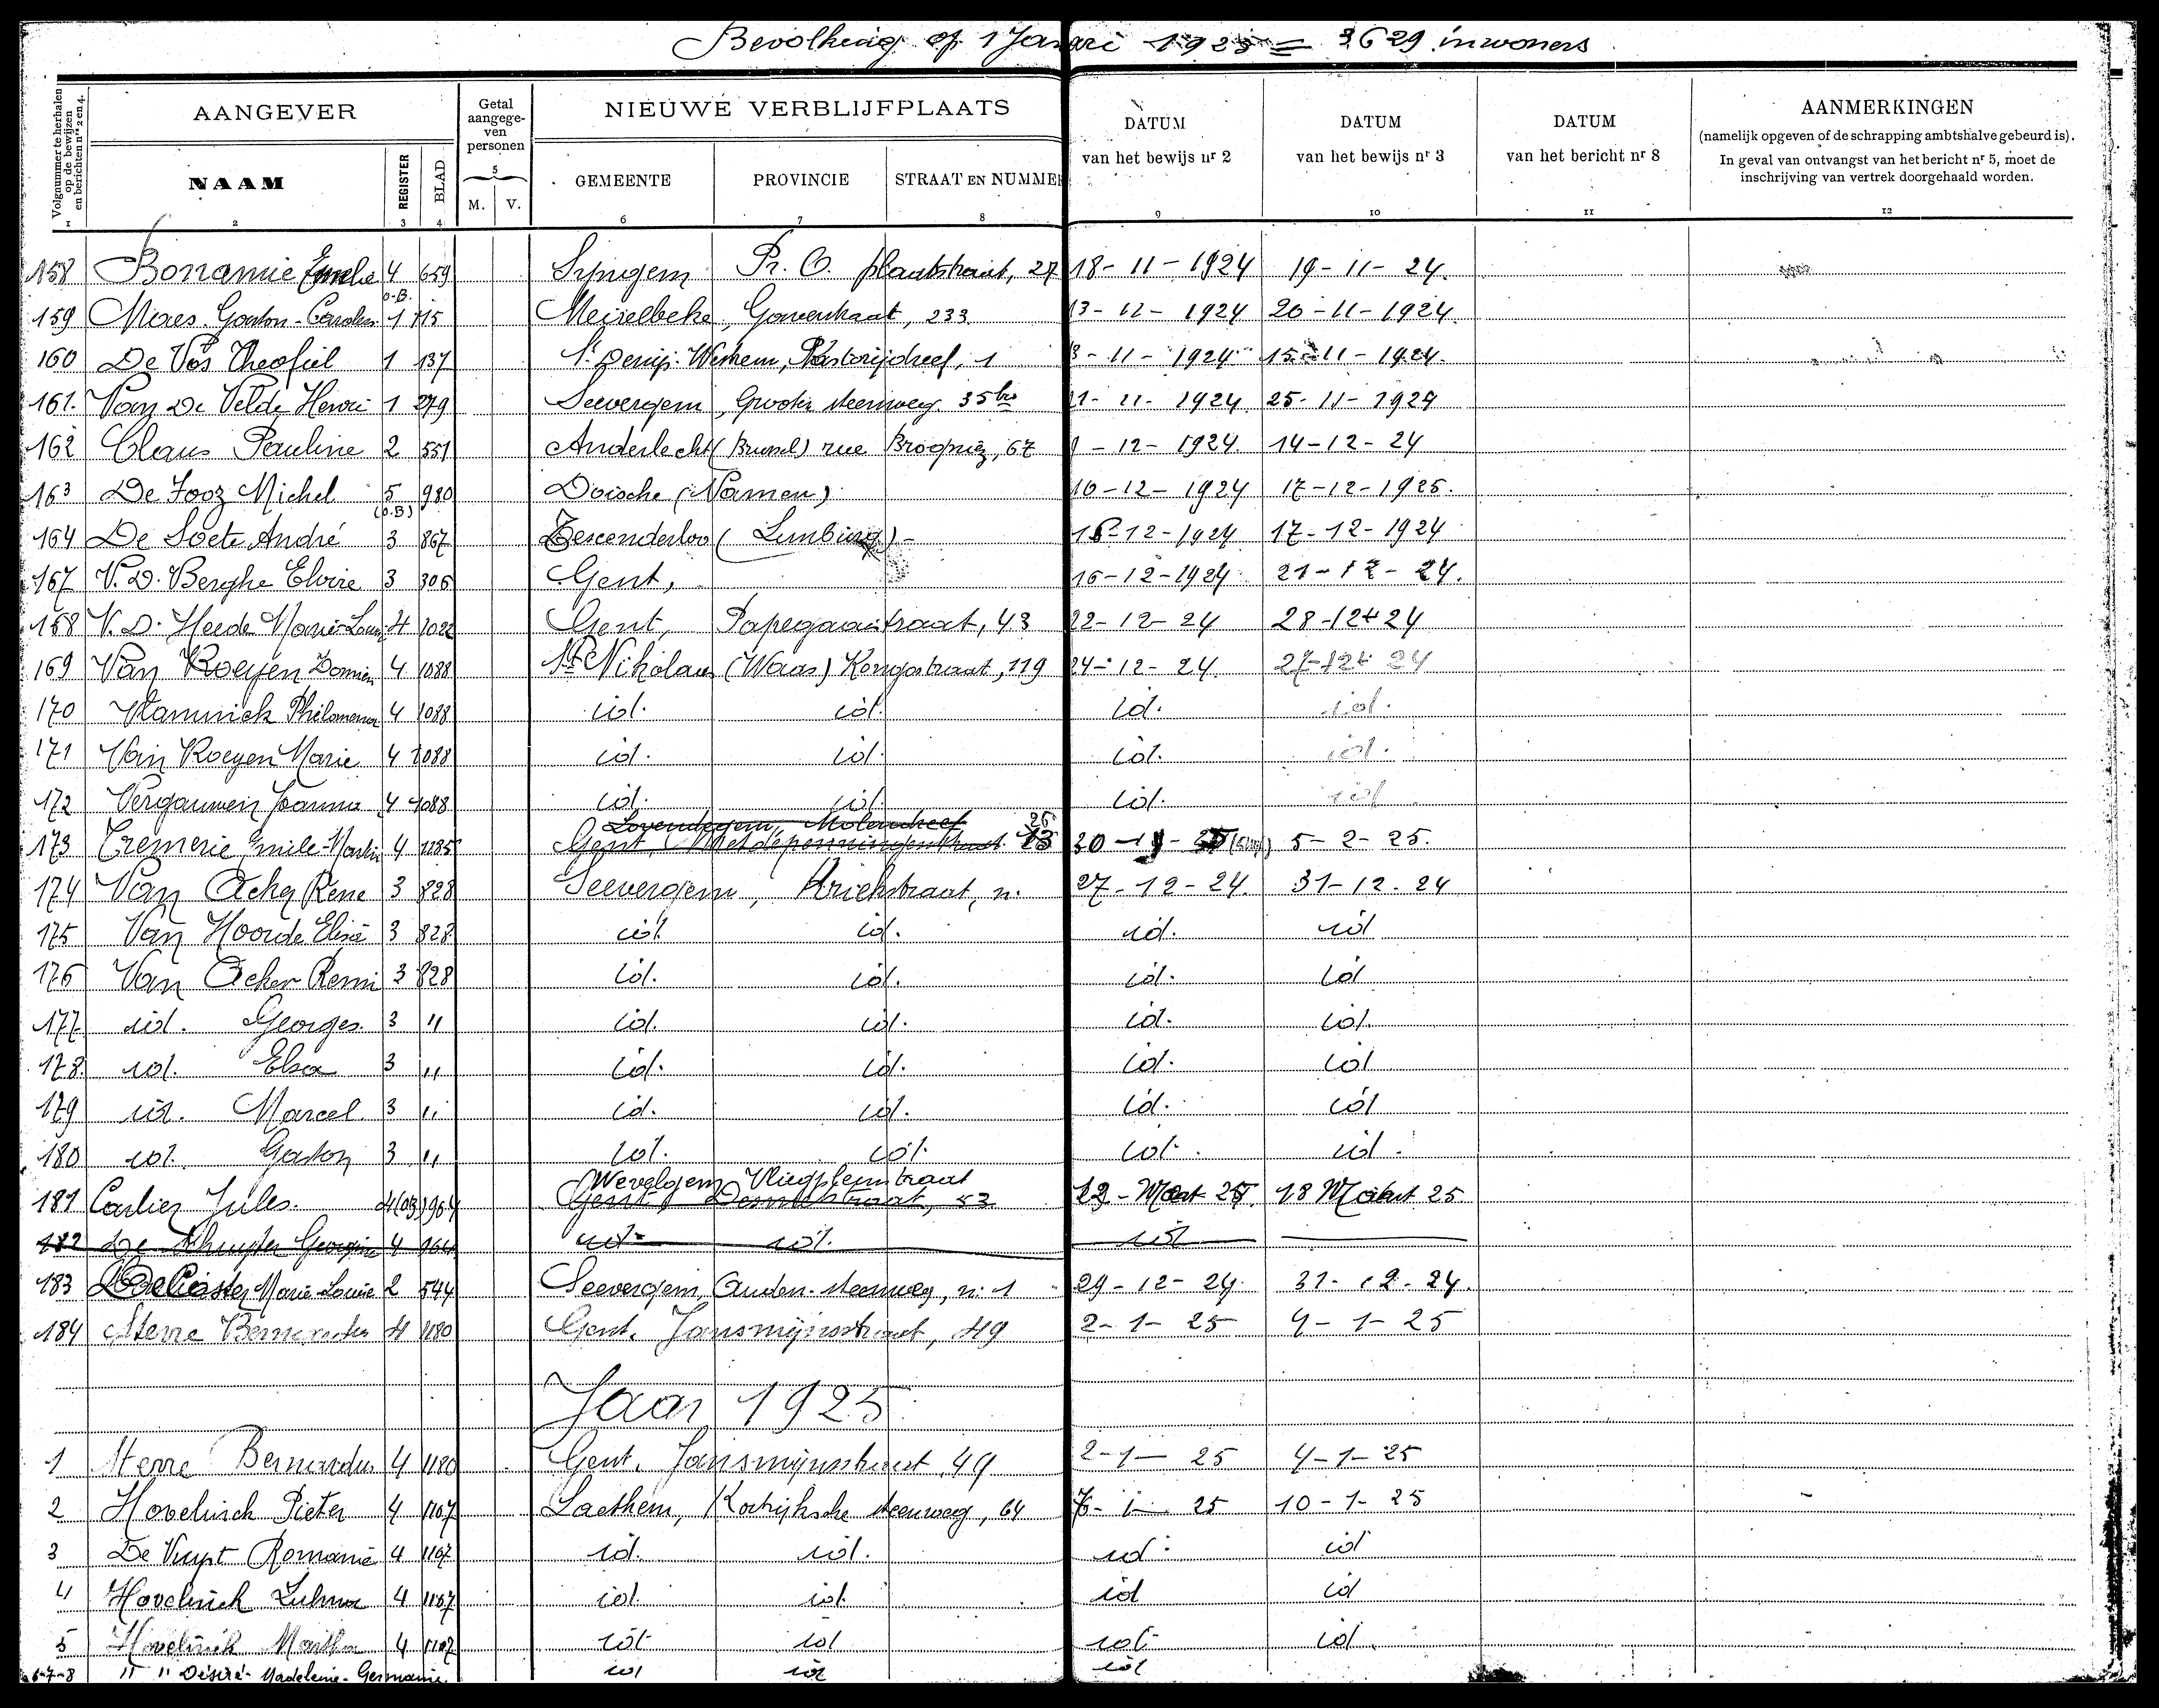 Bevolking op 1 Januari 1925 = 3629 inwoners
Volgnummer te herhalen op de bewijzen en berichten nrs 2 en 4.
AANGEVER
Getal aangege-ven personen
NIEUWE VERBLIJFPLAATS
DATUM van het bewijs nr 2
DATUM van het bewijs nr 3
DATUM van het bericht nr 8
AANMERKINGEN
(namelijk opgeven of de schrapping ambtshalve gebeurd is).
In geval van ontvangst van het bericht nr 5, moet de inschrijving van vertrek doorgehaald worden.
NAAM REGISTER BLAD 5 M. V. GEMEENTE PROVINCIE STRAAT EN NUMMER
1 2 3 4 6 7 8 9 10 11 12
158 Bonamie Emelie 4 659 Syngem Pr. O. plaatstraat, 27 18-11-1924 19-11-24.
O.B.
159 Maes Gaston- 1 715 Meirelbeke, Gaverstraat, 233 13-11-1924 20-11-1924.
160 De Vos Theofiel 1 137 St Denijs-Westrem, Pastorijdreef, 1 8-11-1924 15-11-1924.
161. Van De Velde Henri 1 279 Seevergem, Groote steenweg 35bis 21-11-1924 25-11-1924
162 Claus Pauline 2 551 Anderlecht (Brussel) rue Brogniez, 67 9-12-1924. 14-12-24
163 De Fooz Michel 5 (O.B) 980 Doische (Namen) 10-12-1924 17-12-1925.
164 De Soete André 3 867 Tescenderloo (Limburg) - 16-12-1924 17-12-1924
167 V.D. Berghe Elvire 3 306 Gent, 16-12-1924 21-12-24.
158 V.D. Heede Marie-Louise 4 1022 Gent, Papegaaistraat, 43 22-12-24 28-12-24
169 Van Roeyen Domien 4 1088 St Nikolaus (Waas) Kongostraat, 119 24-12-24 27-12-24
170 Vlaminck Philomena 4 1088 id. id. id. id.
171 Van Roeyen Marie 4 1088 id. id. id. id.
172 Vergauwen Joanna 4 1088 id. id. id. id
Lovendegem, Molendreef 26
173 Cremerie Emile- 4 1285 Gent, 13 30 5-2-25.
174 Van Acker Rene 3 828 Seevergem, Kriekstraat, n. 27-12-24. 31-12-24
175 Van Hoorde Elisa 3 828 id. id. id. id
176 Van Acker Remi 3 828 id. id. id. id
177 id. Georges. 3 " id. id. id. id.
178. id. Elsa 3 " id. id. id. id
179 id. Marcel 3 " id. id. id. id
180 id. Gaston 3 " id. id. id. id.
Wevelgem Vliegpleinstraat
181 Carlier Jules. 4(OB) 964 Gent, 53 12-Maart 25. 18 Maart 25
182 De Georgine 4 964 id. id. id
183 De Coster Marie-Louise 2 544 Seevergem, Auden. steenweg, n: 1 29-12-24. 31-12-24.
184 Sterre Bernardus 4 1180 Gent, Jansmijnsstraat, 49 2-1-25 4-1-25
Jaar 1925
1 Sterre Bernardus 4 1180 Gent, Jansmijnsstraat, 49 2-1-25 4-1-25
2 Hovelinck Pieter 4 1107 Laethem, Kortrijksche steenweg, 64 7-1-25 10-1-25
3 De Vuyst Romanie 4 1107 id. id. id. id
4 Hovelinck Zulma 4 1107 id. id. id id
5 Hovelinck Martha 4 1107 id. id id. id.
6-7-8 " " Désiré-Madeleine-Germaine id id id